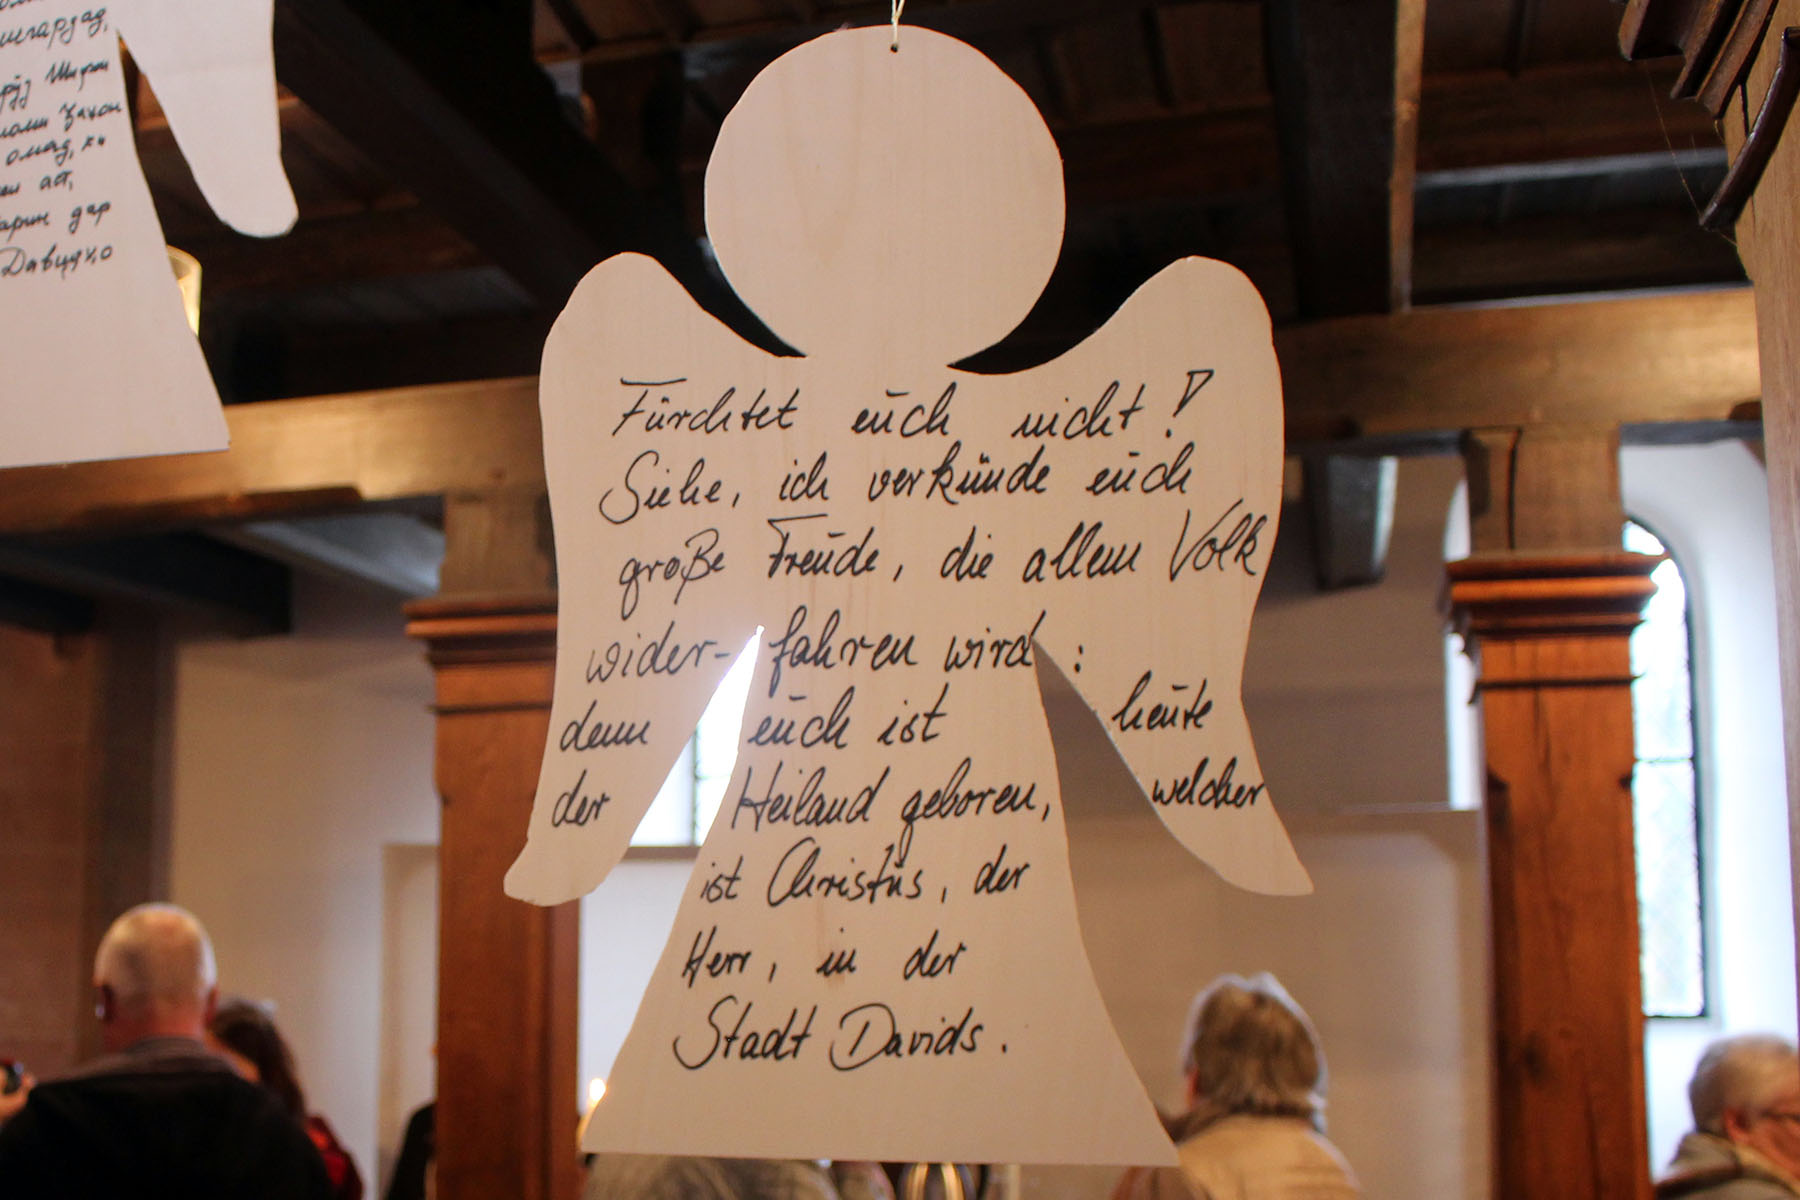 омад, ки
аст,
дар
Fürchtet euch nicht!
Siehe, ich verkünde euch
große Freude, die allem Volk
wider- fahren wird:
denn euch ist heute
der Heiland geboren, welcher
ist Christus, der
Herr, in der
Stadt Davids.